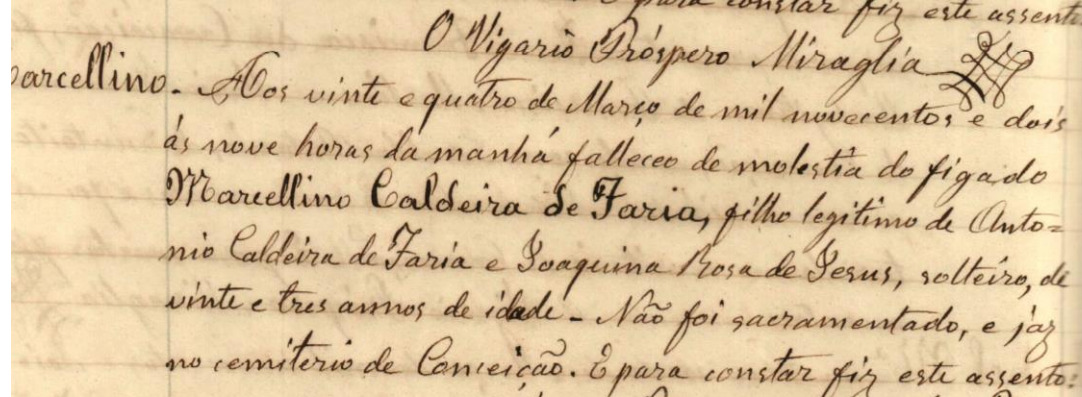 E para constar fiz este assento
O Vigario Próspero Miraglia
Marcellino. Aos vinte e quatro de Março de mil novecentos e dois
ás nove horas da manhã falleceo de molestia do figado
Marcellino Caldeira de Faria, filho legitimo de Anto=
nio Caldeira de Faria e Joaquina Rosa de Jesus, solteiro, de
vinte e tres annos de idade - Não foi sacramentado, e jaz
no cemiterio de Conceição. E para constar fiz este assento: